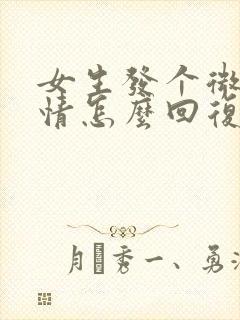 女生發个微
情怎麼回復
月秀一、勇